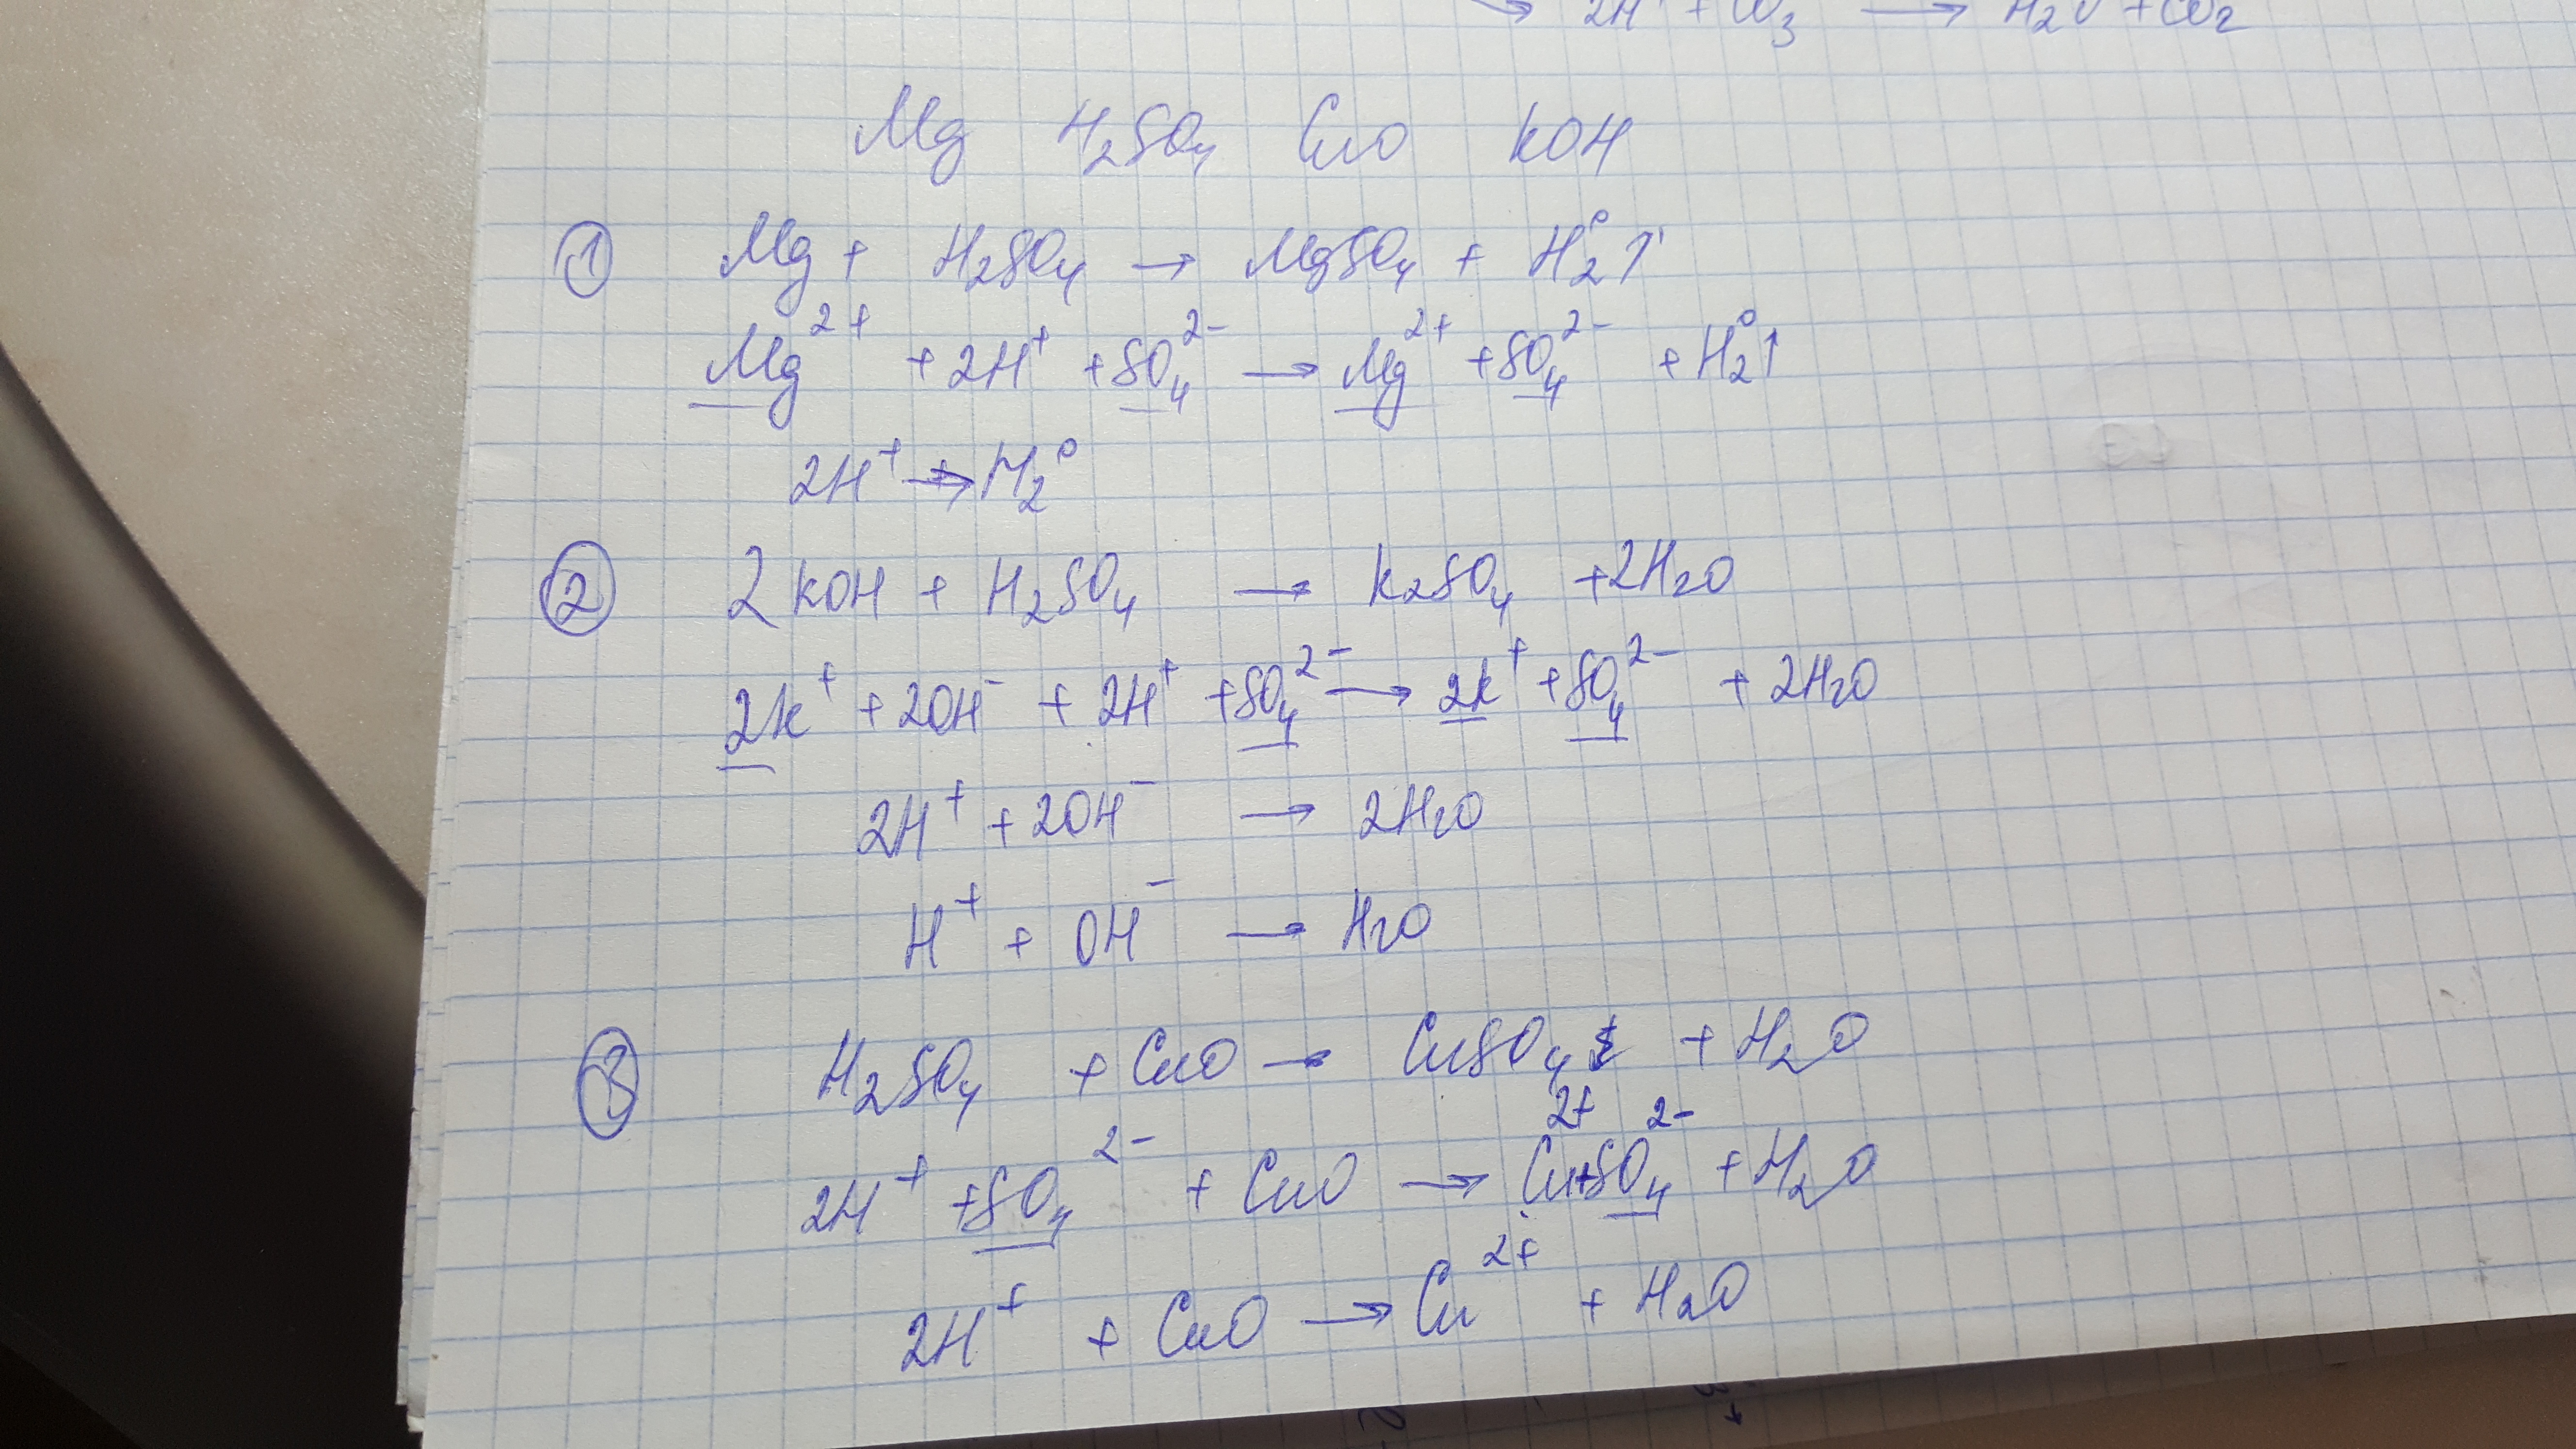 → 2H⁺ + CO₃ → H₂O + CO₂
Mg H₂SO₄ CuO KOH
① Mg + H₂SO₄ → MgSO₄ + H₂⁰↑
Mg²⁺ + 2H⁺ + SO₄²⁻ → Mg²⁺ + SO₄²⁻ + H₂⁰↑
2H⁺ → H₂⁰
② 2KOH + H₂SO₄ → K₂SO₄ + 2H₂O
2K⁺ + 2OH⁻ + 2H⁺ + SO₄²⁻ → 2K⁺ + SO₄²⁻ + 2H₂O
2H⁺ + 2OH⁻ → 2H₂O
H⁺ + OH⁻ → H₂O
③ H₂SO₄ + CuO → CuSO₄ + H₂O
2H⁺ + SO₄²⁻ + CuO → Cu²⁺ + SO₄²⁻ + H₂O
2H⁺ + CuO → Cu²⁺ + H₂O